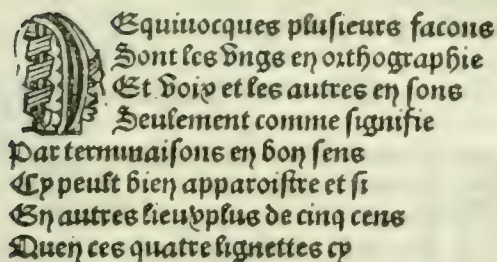 DEquiuocques pluſieurs facons
Sont les vngs en orthographie
Et voix et les autres en ſons
Seulement comme ſignifie
Par terminaiſons en bon ſens
Cy peult bien apparoiſtre et ſi
En autres lieux plus de cinq cens
Quen ces quatre lignettes cy